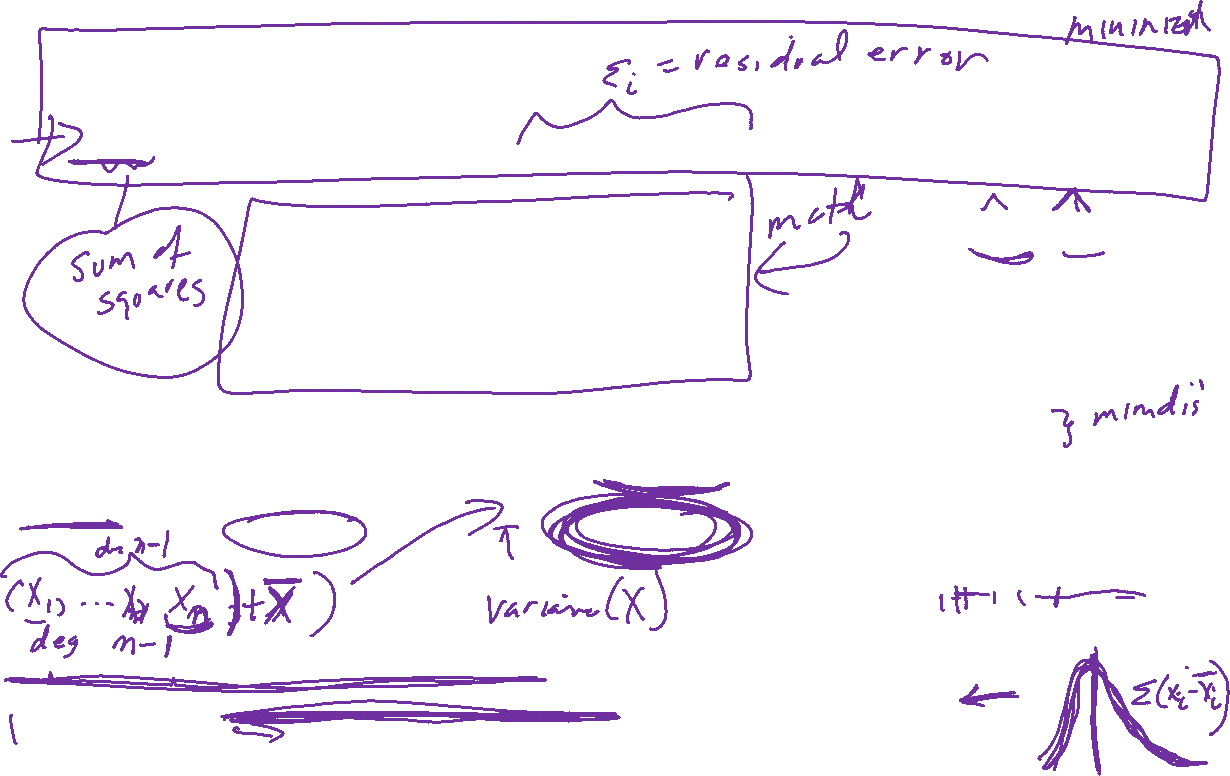 minimize
εi = residual error
sum of
squares
model
n-1
(X1, ... Xn) + X̄)
deg n-1
variance(X)
Σ(xi - x̄i)